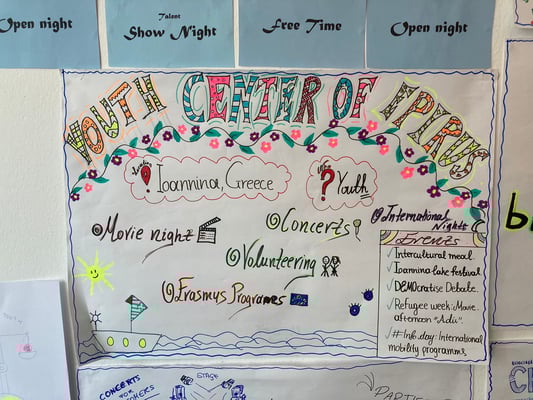 Open night
Talent
Show Night
Free Time
Open night
YOUTH CENTER OF IPIRUS
Ioannina, Greece
Youth
Movie night
Concerts
International
Nights
Volunteering
Erasmus Programes
Events
Intercultural meal
Ioannina lake festival
DEMOcratise Debate
Refugee week: Movie
afternoon
# Info day: International
mobility programms
CONCERTS
FOR
STAGE